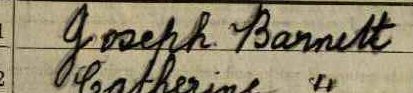 1 Joseph Barnett
2 Catherine "